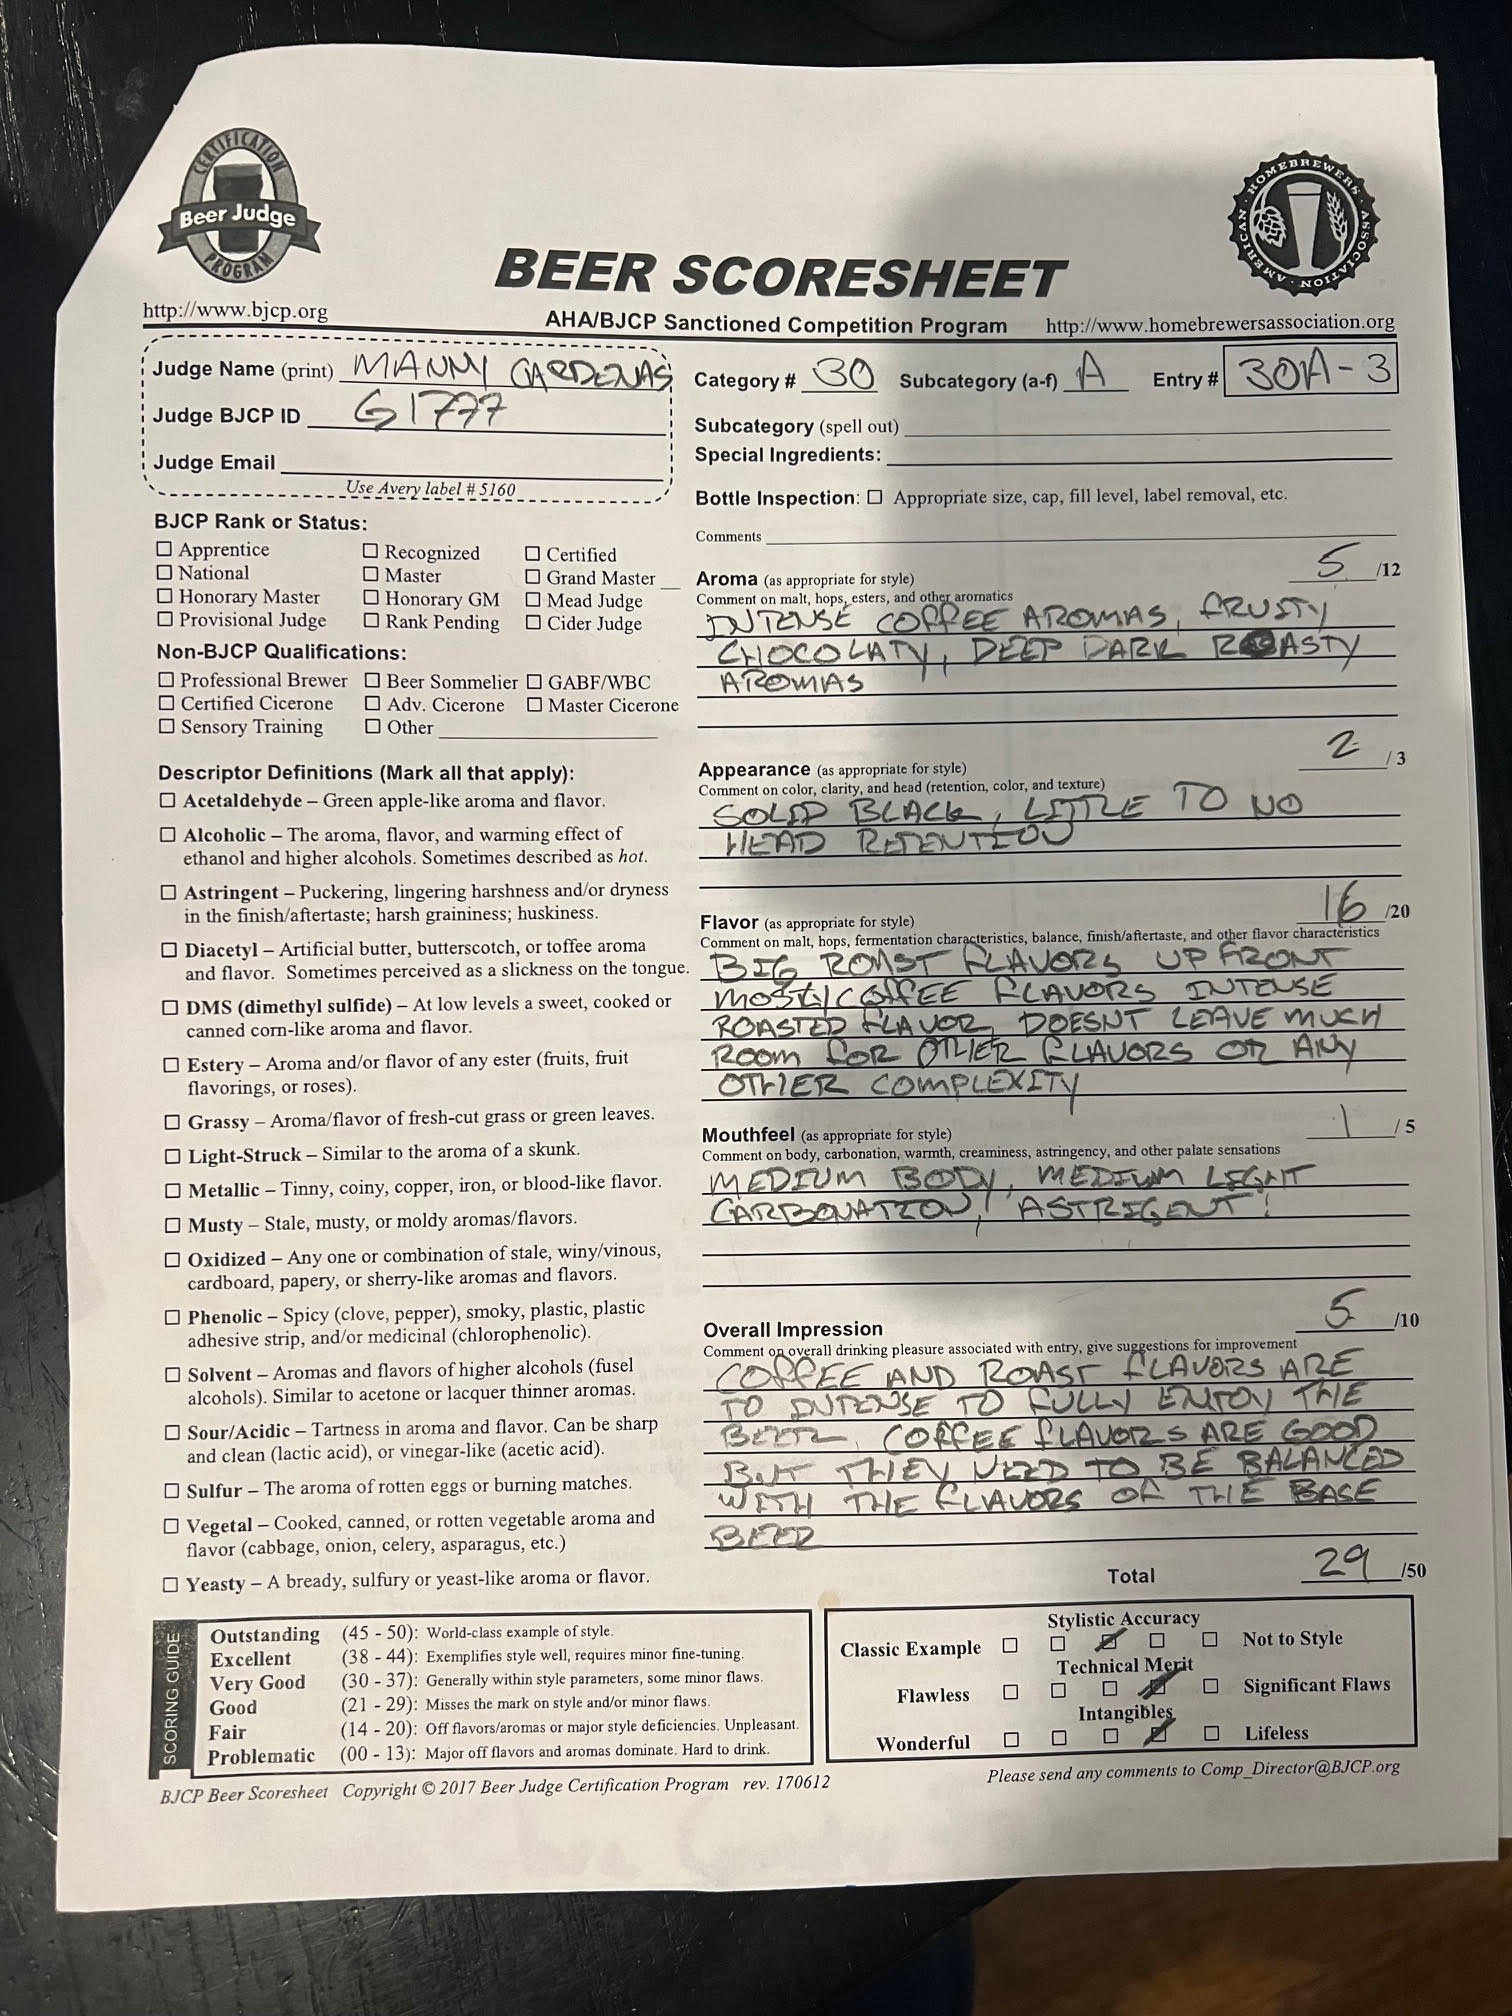 CERTIFICATION
Beer Judge
PROGRAM
AMERICAN · HOMEBREWERS · ASSOCIATION
BEER SCORESHEET
http://www.bjcp.org
AHA/BJCP Sanctioned Competition Program
http://www.homebrewersassociation.org
Judge Name (print) MANNY CARDENAS
Judge BJCP ID G1777
Judge Email
Use Avery label # 5160
BJCP Rank or Status:
☐ Apprentice ☐ Recognized ☐ Certified
☐ National ☐ Master ☐ Grand Master
☐ Honorary Master ☐ Honorary GM ☐ Mead Judge
☐ Provisional Judge ☐ Rank Pending ☐ Cider Judge
Non-BJCP Qualifications:
☐ Professional Brewer ☐ Beer Sommelier ☐ GABF/WBC
☐ Certified Cicerone ☐ Adv. Cicerone ☐ Master Cicerone
☐ Sensory Training ☐ Other
Descriptor Definitions (Mark all that apply):
☐ Acetaldehyde – Green apple-like aroma and flavor.
☐ Alcoholic – The aroma, flavor, and warming effect of
ethanol and higher alcohols. Sometimes described as hot.
☐ Astringent – Puckering, lingering harshness and/or dryness
in the finish/aftertaste; harsh graininess; huskiness.
☐ Diacetyl – Artificial butter, butterscotch, or toffee aroma
and flavor. Sometimes perceived as a slickness on the tongue.
☐ DMS (dimethyl sulfide) – At low levels a sweet, cooked or
canned corn-like aroma and flavor.
☐ Estery – Aroma and/or flavor of any ester (fruits, fruit
flavorings, or roses).
☐ Grassy – Aroma/flavor of fresh-cut grass or green leaves.
☐ Light-Struck – Similar to the aroma of a skunk.
☐ Metallic – Tinny, coiny, copper, iron, or blood-like flavor.
☐ Musty – Stale, musty, or moldy aromas/flavors.
☐ Oxidized – Any one or combination of stale, winy/vinous,
cardboard, papery, or sherry-like aromas and flavors.
☐ Phenolic – Spicy (clove, pepper), smoky, plastic, plastic
adhesive strip, and/or medicinal (chlorophenolic).
☐ Solvent – Aromas and flavors of higher alcohols (fusel
alcohols). Similar to acetone or lacquer thinner aromas.
☐ Sour/Acidic – Tartness in aroma and flavor. Can be sharp
and clean (lactic acid), or vinegar-like (acetic acid).
☐ Sulfur – The aroma of rotten eggs or burning matches.
☐ Vegetal – Cooked, canned, or rotten vegetable aroma and
flavor (cabbage, onion, celery, asparagus, etc.)
☐ Yeasty – A bready, sulfury or yeast-like aroma or flavor.
Category # 30 Subcategory (a-f) A Entry # 30A-3
Subcategory (spell out)
Special Ingredients:
Bottle Inspection: ☐ Appropriate size, cap, fill level, label removal, etc.
Comments
Aroma (as appropriate for style) 5 /12
Comment on malt, hops, esters, and other aromatics
INTENSE COFFEE AROMAS, FRUITY
CHOCOLATY, DEEP DARK ROASTY
AROMAS
Appearance (as appropriate for style) 2 / 3
Comment on color, clarity, and head (retention, color, and texture)
SOLID BLACK, LITTLE TO NO
HEAD RETENTION
Flavor (as appropriate for style) 16 /20
Comment on malt, hops, fermentation characteristics, balance, finish/aftertaste, and other flavor characteristics
BIG ROAST FLAVORS UP FRONT
MOSTLY COFFEE FLAVORS INTENSE
ROASTED FLAVOR, DOESNT LEAVE MUCH
ROOM FOR OTHER FLAVORS OR ANY
OTHER COMPLEXITY
Mouthfeel (as appropriate for style) 1 / 5
Comment on body, carbonation, warmth, creaminess, astringency, and other palate sensations
MEDIUM BODY, MEDIUM LIGHT
CARBONATION, ASTRIGENT!
Overall Impression 5 /10
Comment on overall drinking pleasure associated with entry, give suggestions for improvement
COFFEE AND ROAST FLAVORS ARE
TO INTENSE TO FULLY ENJOY THE
BEER, COFFEE FLAVORS ARE GOOD
BUT THEY NEED TO BE BALANCED
WITH THE FLAVORS OF THE BASE
BEER
Total 29 /50
SCORING GUIDE
Outstanding (45 - 50): World-class example of style.
Excellent (38 - 44): Exemplifies style well, requires minor fine-tuning.
Very Good (30 - 37): Generally within style parameters, some minor flaws.
Good (21 - 29): Misses the mark on style and/or minor flaws.
Fair (14 - 20): Off flavors/aromas or major style deficiencies. Unpleasant.
Problematic (00 - 13): Major off flavors and aromas dominate. Hard to drink.
Stylistic Accuracy
Classic Example ☐ ☐ ☑ ☐ ☐ Not to Style
Technical Merit
Flawless ☐ ☐ ☐ ☑ ☐ Significant Flaws
Intangibles
Wonderful ☐ ☐ ☐ ☑ ☐ Lifeless
BJCP Beer Scoresheet Copyright © 2017 Beer Judge Certification Program rev. 170612
Please send any comments to Comp_Director@BJCP.org